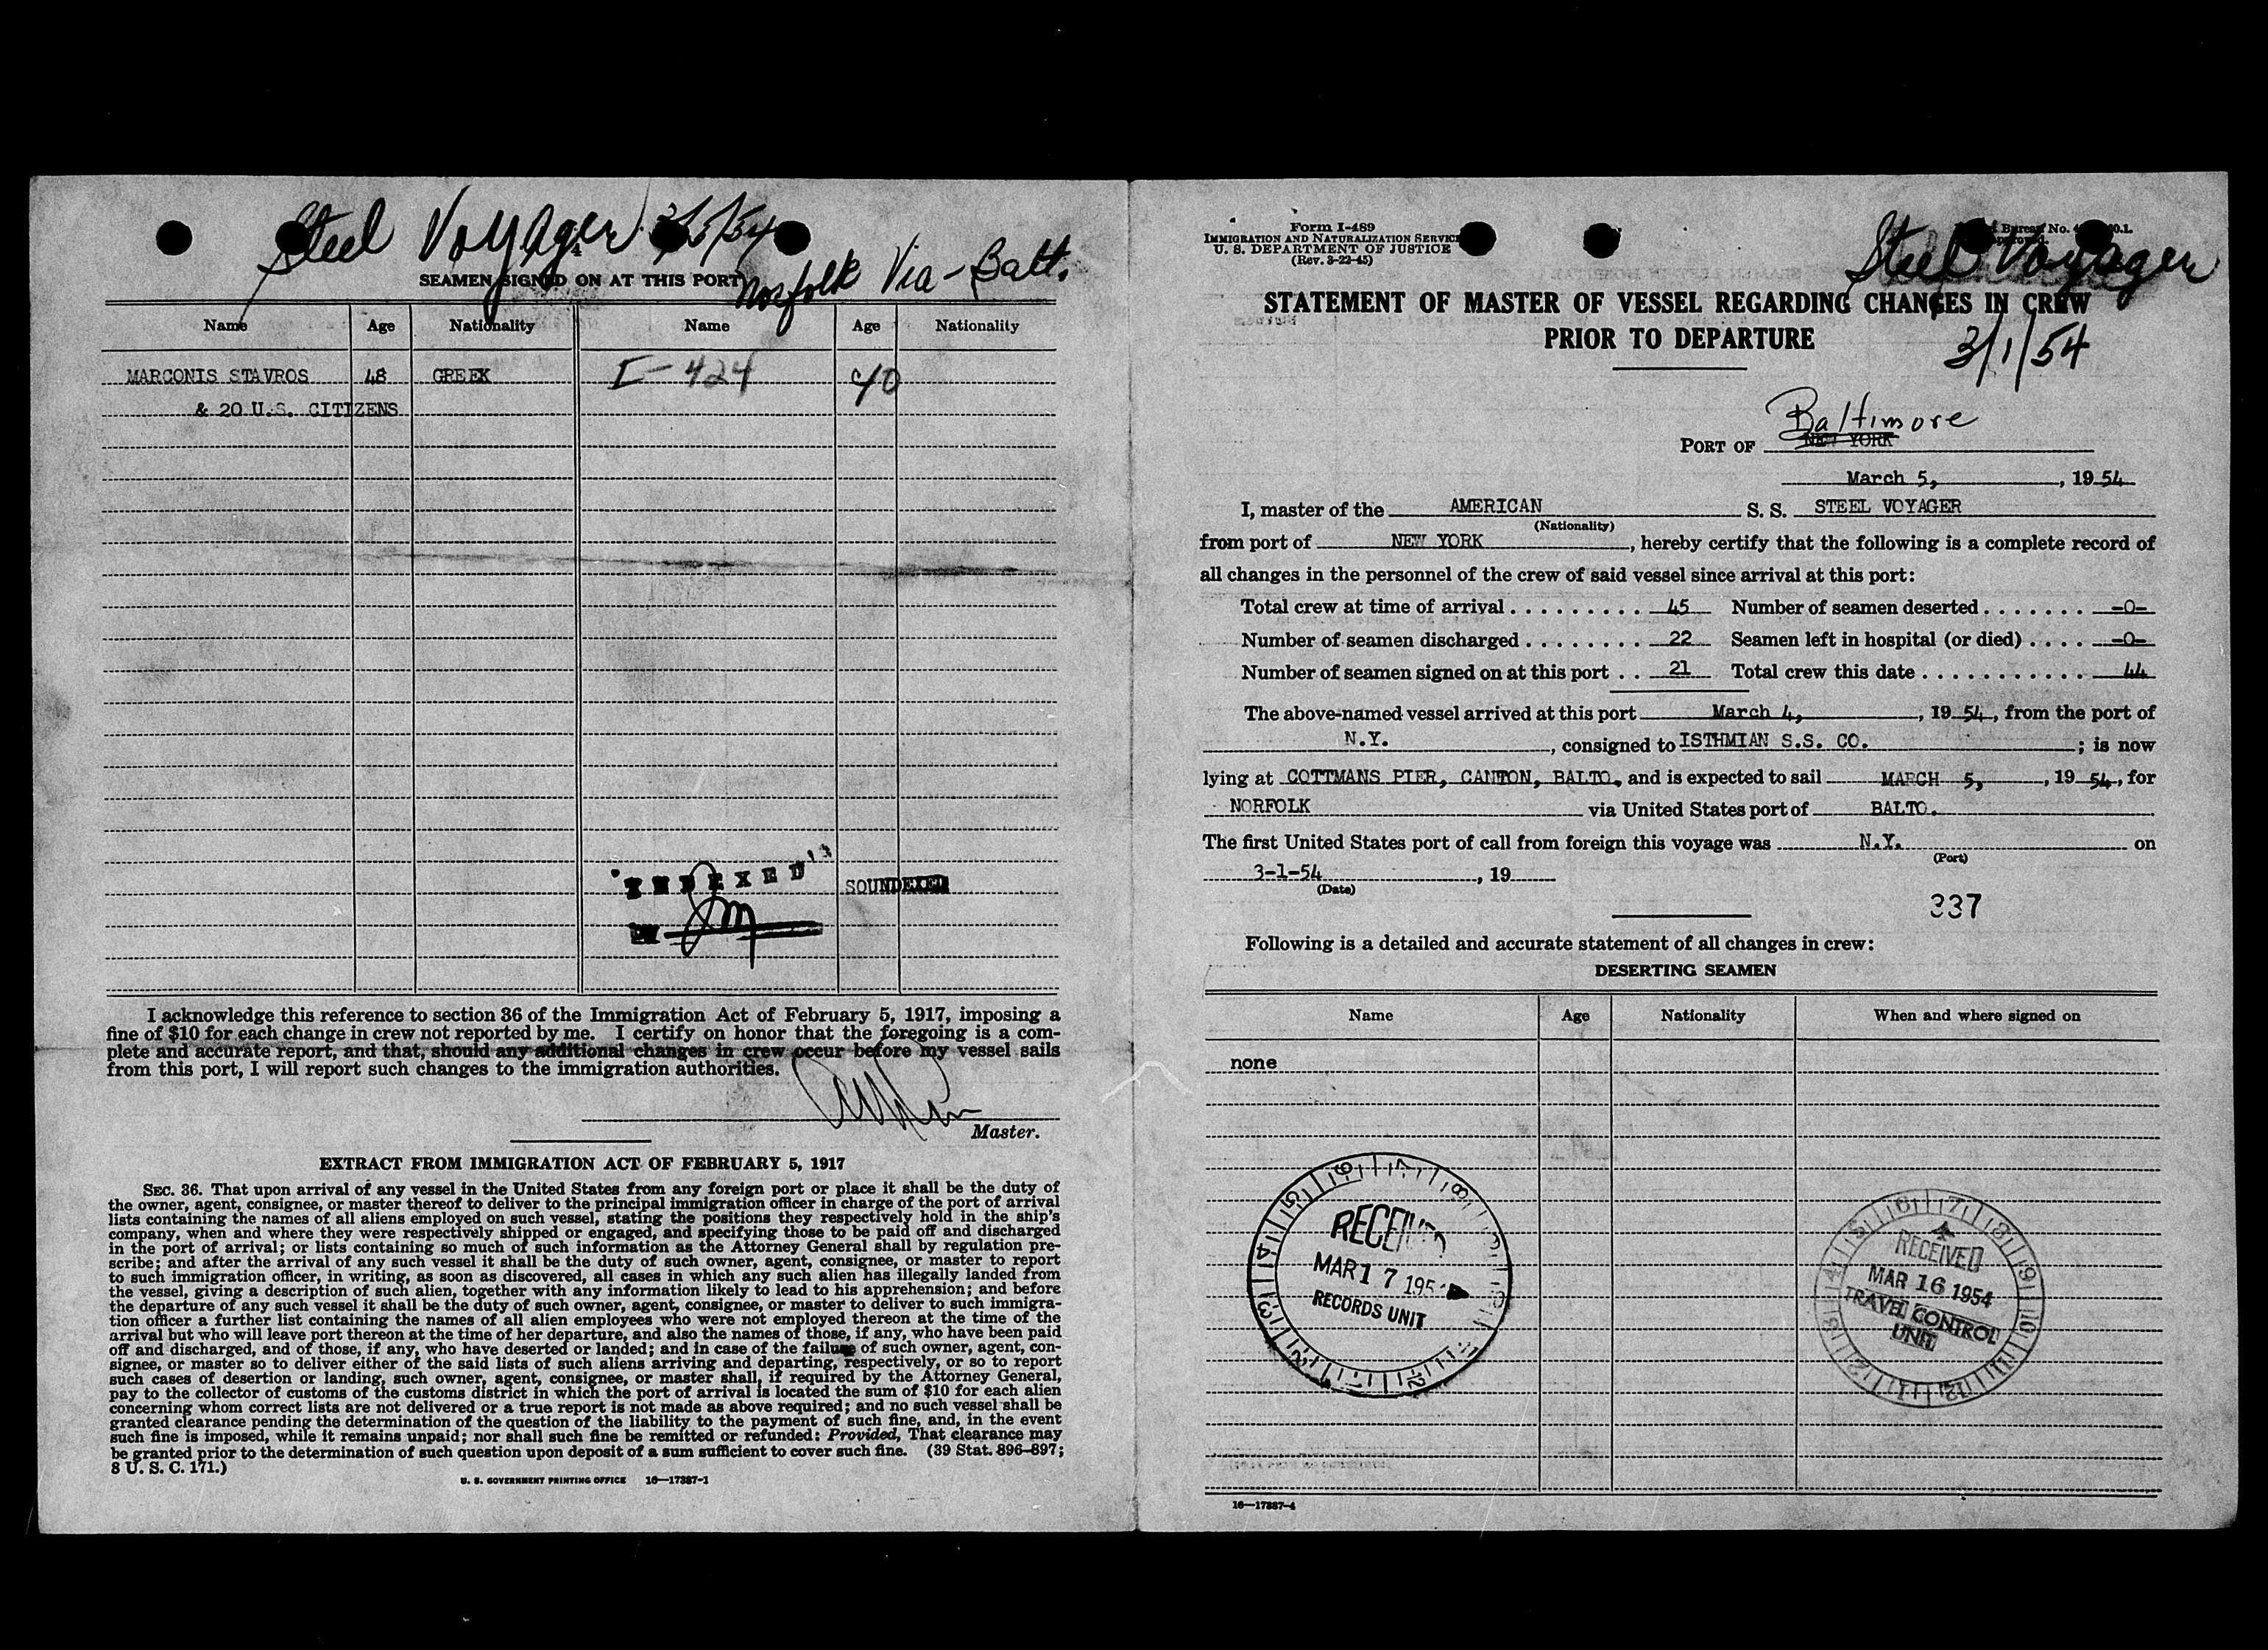 Steel Voyager 3/5/54
Norfolk Via - Balt.
SEAMEN SIGNED ON AT THIS PORT
Name Age Nationality Name Age Nationality
MARCONIS STAVROS 48 GREEK I-424 40
& 20 U.S. CITIZENS
INDEXED
SOUNDEXED
I acknowledge this reference to section 36 of the Immigration Act of February 5, 1917, imposing a
fine of $10 for each change in crew not reported by me. I certify on honor that the foregoing is a com-
plete and accurate report, and that, should any additional changes in crew occur before my vessel sails
from this port, I will report such changes to the immigration authorities.
Master.
EXTRACT FROM IMMIGRATION ACT OF FEBRUARY 5, 1917
SEC. 36. That upon arrival of any vessel in the United States from any foreign port or place it shall be the duty of
the owner, agent, consignee, or master thereof to deliver to the principal immigration officer in charge of the port of arrival
lists containing the names of all aliens employed on such vessel, stating the positions they respectively hold in the ship's
company, when and where they were respectively shipped or engaged, and specifying those to be paid off and discharged
in the port of arrival; or lists containing so much of such information as the Attorney General shall by regulation pre-
scribe; and after the arrival of any such vessel it shall be the duty of such owner, agent, consignee, or master to report
to such immigration officer, in writing, as soon as discovered, all cases in which any such alien has illegally landed from
the vessel, giving a description of such alien, together with any information likely to lead to his apprehension; and before
the departure of any such vessel it shall be the duty of such owner, agent, consignee, or master to deliver to such immigra-
tion officer a further list containing the names of all alien employees who were not employed thereon at the time of the
arrival but who will leave port thereon at the time of her departure, and also the names of those, if any, who have been paid
off and discharged, and of those, if any, who have deserted or landed; and in case of the failure of such owner, agent, con-
signee, or master so to deliver either of the said lists of such aliens arriving and departing, respectively, or so to report
such cases of desertion or landing, such owner, agent, consignee, or master shall, if required by the Attorney General,
pay to the collector of customs of the customs district in which the port of arrival is located the sum of $10 for each alien
concerning whom correct lists are not delivered or a true report is not made as above required; and no such vessel shall be
granted clearance pending the determination of the question of the liability to the payment of such fine, and, in the event
such fine is imposed, while it remains unpaid; nor shall such fine be remitted or refunded: Provided, That clearance may
be granted prior to the determination of such question upon deposit of a sum sufficient to cover such fine. (39 Stat. 896-897;
8 U. S. C. 171.)
U. S. GOVERNMENT PRINTING OFFICE 16—17387-1
Form I-489
IMMIGRATION AND NATURALIZATION SERVICE
U. S. DEPARTMENT OF JUSTICE
(Rev. 3-22-45)
Bureau No.
Steel Voyager
STATEMENT OF MASTER OF VESSEL REGARDING CHANGES IN CREW
PRIOR TO DEPARTURE
3/1/54
Baltimore
PORT OF NEW YORK
March 5, , 19 54
I, master of the AMERICAN S. S. STEEL VOYAGER
(Nationality)
from port of NEW YORK , hereby certify that the following is a complete record of
all changes in the personnel of the crew of said vessel since arrival at this port:
Total crew at time of arrival . . . . . . . . . 45 Number of seamen deserted . . . . . . . -0-
Number of seamen discharged . . . . . . . . 22 Seamen left in hospital (or died) . . . . -0-
Number of seamen signed on at this port . . 21 Total crew this date . . . . . . . . . . . 44
The above-named vessel arrived at this port March 4, , 19 54 , from the port of
N.Y. , consigned to ISTHMIAN S.S. CO. ; is now
lying at COTTMANS PIER, CANTON, BALTO. and is expected to sail MARCH 5, , 19 54 , for
NORFOLK via United States port of BALTO.
The first United States port of call from foreign this voyage was N.Y. on
(Port)
3-1-54 , 19
(Date)
337
Following is a detailed and accurate statement of all changes in crew:
DESERTING SEAMEN
Name Age Nationality When and where signed on
none
RECEIVED
MAR 17 195
RECORDS UNIT
RECEIVED
MAR 16 1954
TRAVEL CONTROL
UNIT
16—17387-4